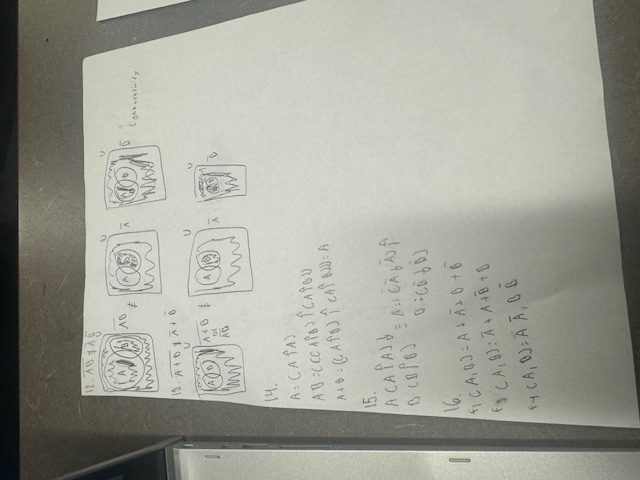 12. A̅B̅ ≢ A̅ B̅
U U U
A B A̅B̅ ≢ A B A̅ A B B̅
Commutativity
13. A̅+̅B̅ ≢ A̅ + B̅
U U U
A B A̅+̅B̅ ≢ A B A̅ A B B̅
or
A̅B̅
14.
A = (A↑A)
AB = (((A↑B)↑(A↑B))
A+B = ((A↑B)↑(A↑B)) = A
15.
A(A↑A)↓
B(B↑B)
≡ A = (A̅↓A̅)↑
B = (B̅↓B̅)
16
f₁(A,B) = A + A̅ + B + B̅
(A,B) = A̅ + A + B̅ + B
f₄(A,B) = A A̅, B B̅